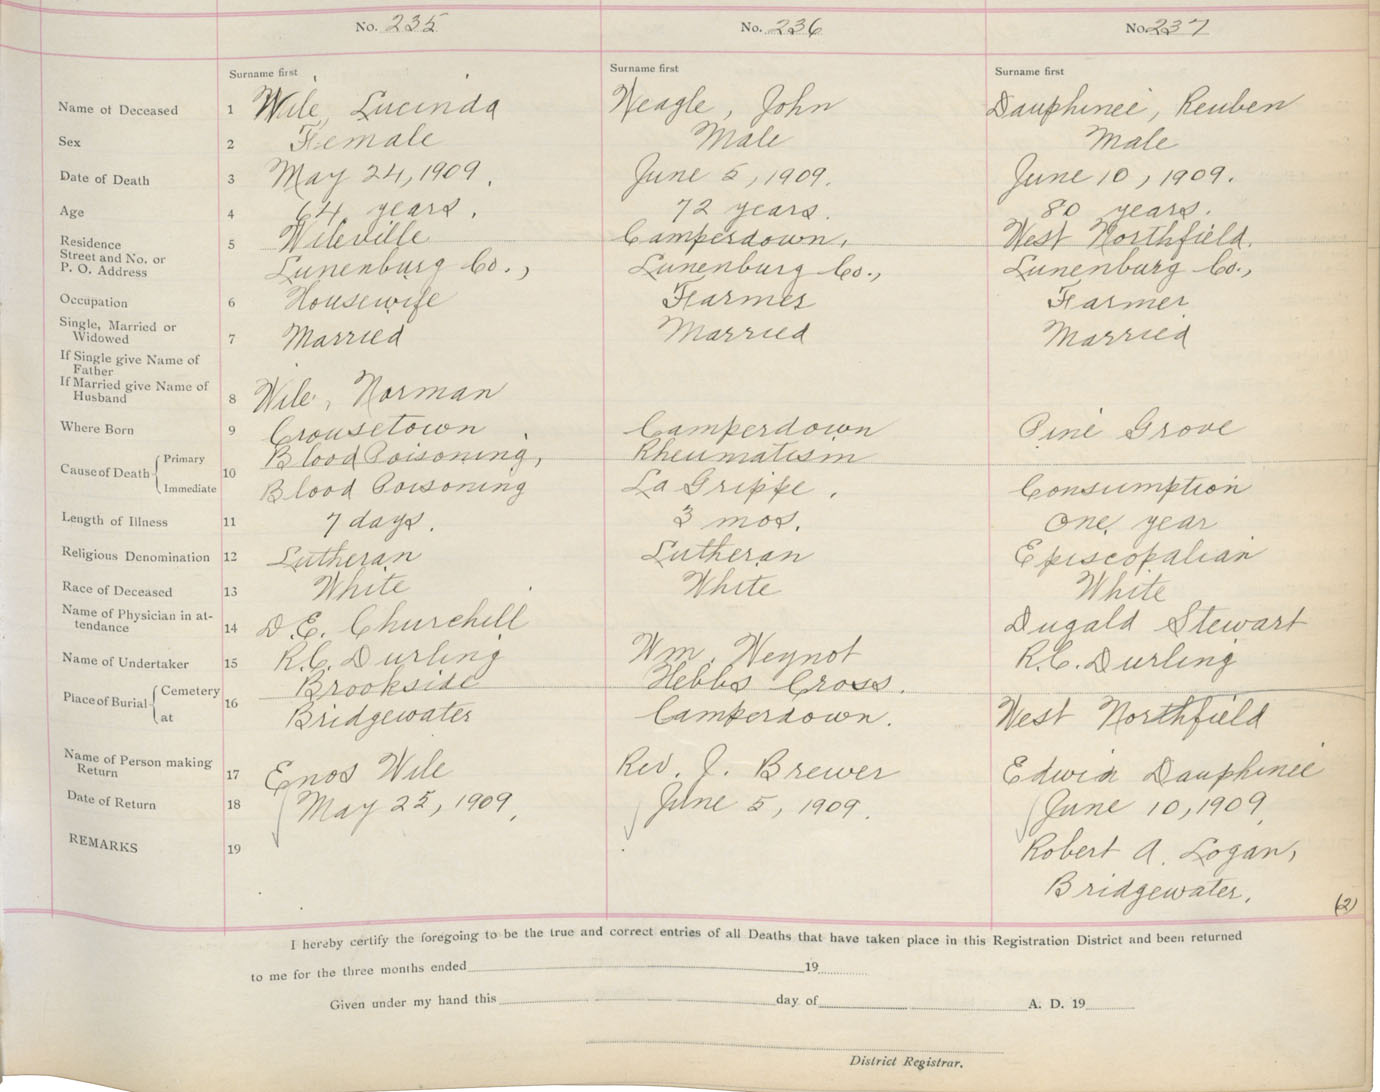 No. 235 No. 236 No. 237
Surname first Surname first Surname first
Name of Deceased 1 Wile, Lucinda Neagle, John Dauphineé, Reuben
Sex 2 Female Male Male
Date of Death 3 May 24, 1909. June 5, 1909. June 10, 1909.
Age 4 64 years. 72 years. 80 years.
Residence 5 Wileville Camperdown, West Northfield.
Street and No. or
P. O. Address Lunenburg Co., Lunenburg Co., Lunenburg Co.,
Occupation 6 Housewife Farmer Farmer
Single, Married or
Widowed 7 Married Married Married
If Single give Name of
Father
If Married give Name of
Husband 8 Wile, Norman
Where Born 9 Crousetown Camperdown Pine Grove
Cause of Death Primary 10 Blood Poisoning, Rheumatism
Immediate Blood Poisoning La Grippe. Consumption
Length of Illness 11 7 days. 3 mos. One year
Religious Denomination 12 Lutheran Lutheran Episcopalian
Race of Deceased 13 White White White
Name of Physician in at-
tendance 14 D. E. Churchill Dugald Stewart
Name of Undertaker 15 R.C. Durling Wm. Weynot R.C. Durling
Place of Burial Cemetery 16 Brookside Hebbs Cross.
at Bridgewater Camperdown. West Northfield
Name of Person making
Return 17 Enos Wile Rev. J. Brewer Edwin Dauphineé
Date of Return 18 May 25, 1909. June 5, 1909. June 10, 1909.
REMARKS 19 Robert A. Logan,
Bridgewater.
(2)
I hereby certify the foregoing to be the true and correct entries of all Deaths that have taken place in this Registration District and been returned
to me for the three months ended 19
Given under my hand this day of A. D. 19
District Registrar.